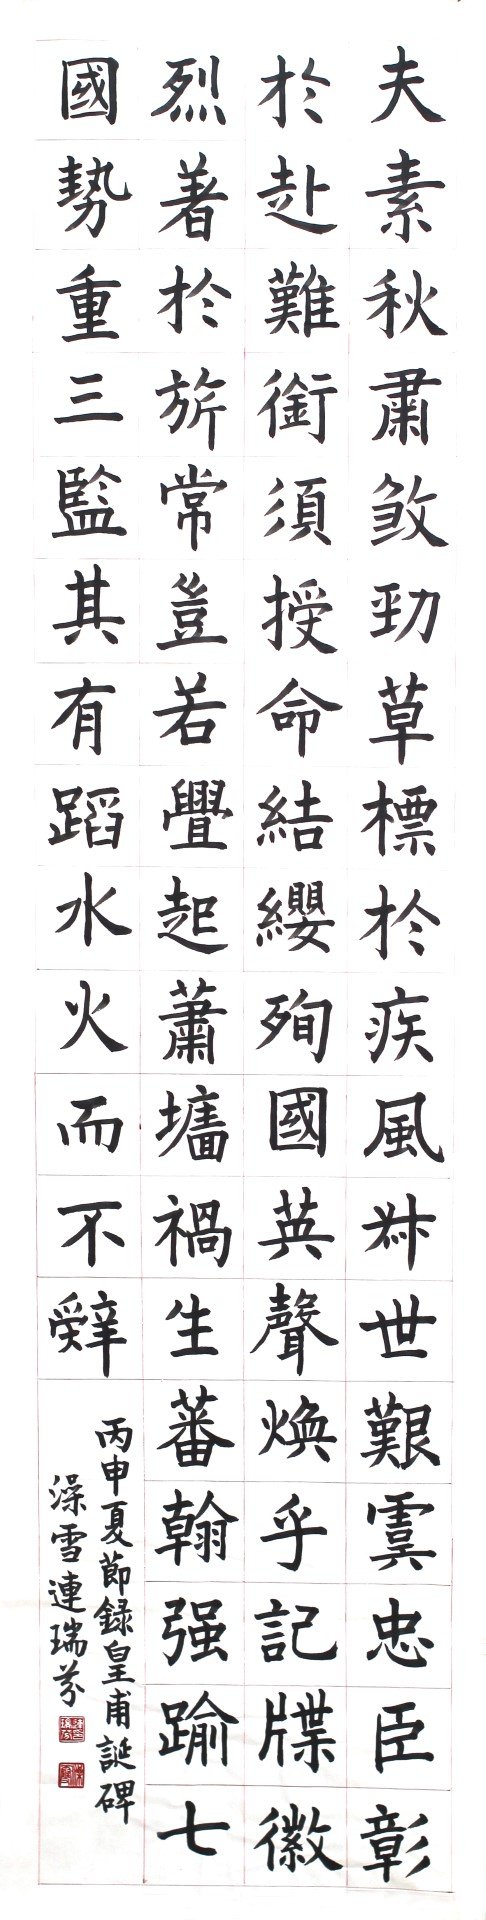 夫素秋肅煞勁草標於疾風叔世艱虞忠臣彰
於赴難銜須授命結纓殉國英聲煥乎記牒徽
烈著於旂常豈若舋起蕭墻禍生蕃翰强踰七
國勢重三監其有蹈水火而不辤
丙申夏節録皇甫誕碑
澡雪連瑞芬